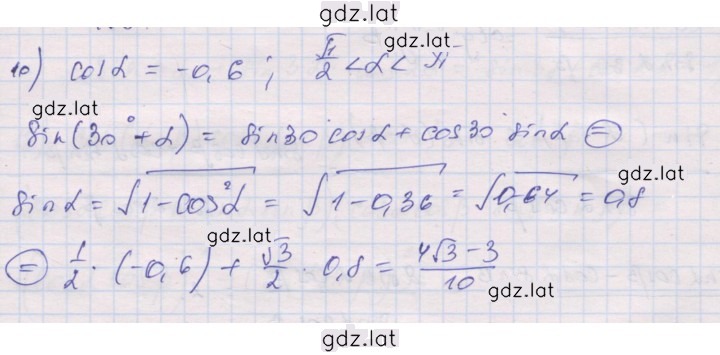 gdz.lat
10) cosα = -0,6 ; π/2 < α < π
gdz.lat
sin(30° + α) = sin30° cosα + cos30° sinα =
sinα = √1-cos²α = √1-0,36 = √0,64 = 0,8
gdz.lat
gdz.lat
= 1/2 · (-0,6) + √3/2 · 0,8 = 4√3 - 3/10
gdz.lat
gdz.lat